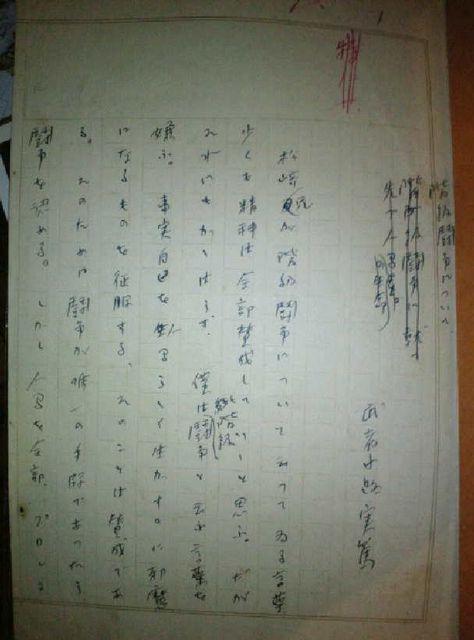 階級闘争について
武者小路実篤
松崎兄が階級闘争について云つてゐる言葉
少くも精神は全部賛成していゝと思ふ。だが
それにもかゝはらず。僕は階級闘争と云ふ言葉を
嫌ふ。事実自己を人間らしく生かすのに邪魔
になるものを征服する、そのことは賛成であ
る。そのためには闘争が唯一の手段であつたら
闘争を認める。しかし人間を全部、プロレ